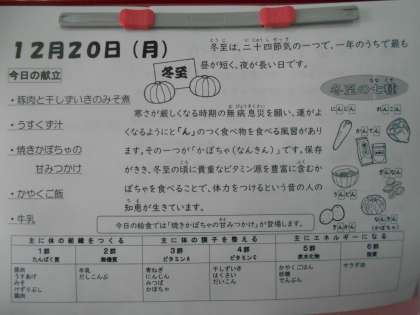 12月20日(月)
今日の献立
・豚肉と干しずいきのみそ煮
・うすくず汁
・焼きかぼちゃの
甘みつかけ
・かやくご飯
・牛乳
冬至
冬至は、二十四節気の一つで、一年のうちで最も
昼が短く、夜が長い日です。
寒さが厳しくなる時期の無病息災を願い、運がよ
くなるようにと「ん」のつく食べ物を食べる風習があり
ます。その一つが「かぼちゃ(なんきん)」です。保存
がきき、冬至の頃に貴重なビタミン源を豊富に含むか
ぼちゃを食べることで、体力をつけるという昔の人の
知恵が生きています。
今日の給食では「焼きかぼちゃの甘みつかけ」が登場します。
冬至の七種
にんじん
れんこん
かんてん
きんかん
主に体の組織をつくる
主に体の調子を整える
主にエネルギーになる
1群
たんぱく質
2群
無機質
3群
ビタミンA
4群
ビタミンC
5群
炭水化物
6群
脂質
豚肉
うすあげ
みそ
けずりぶし
鶏肉
牛乳
だしこんぶ
青ねぎ
にんじん
みつば
かぼちゃ
干しずいき
はくさい
だいこん
かやくごはん
砂糖
でんぷん
サラダ油